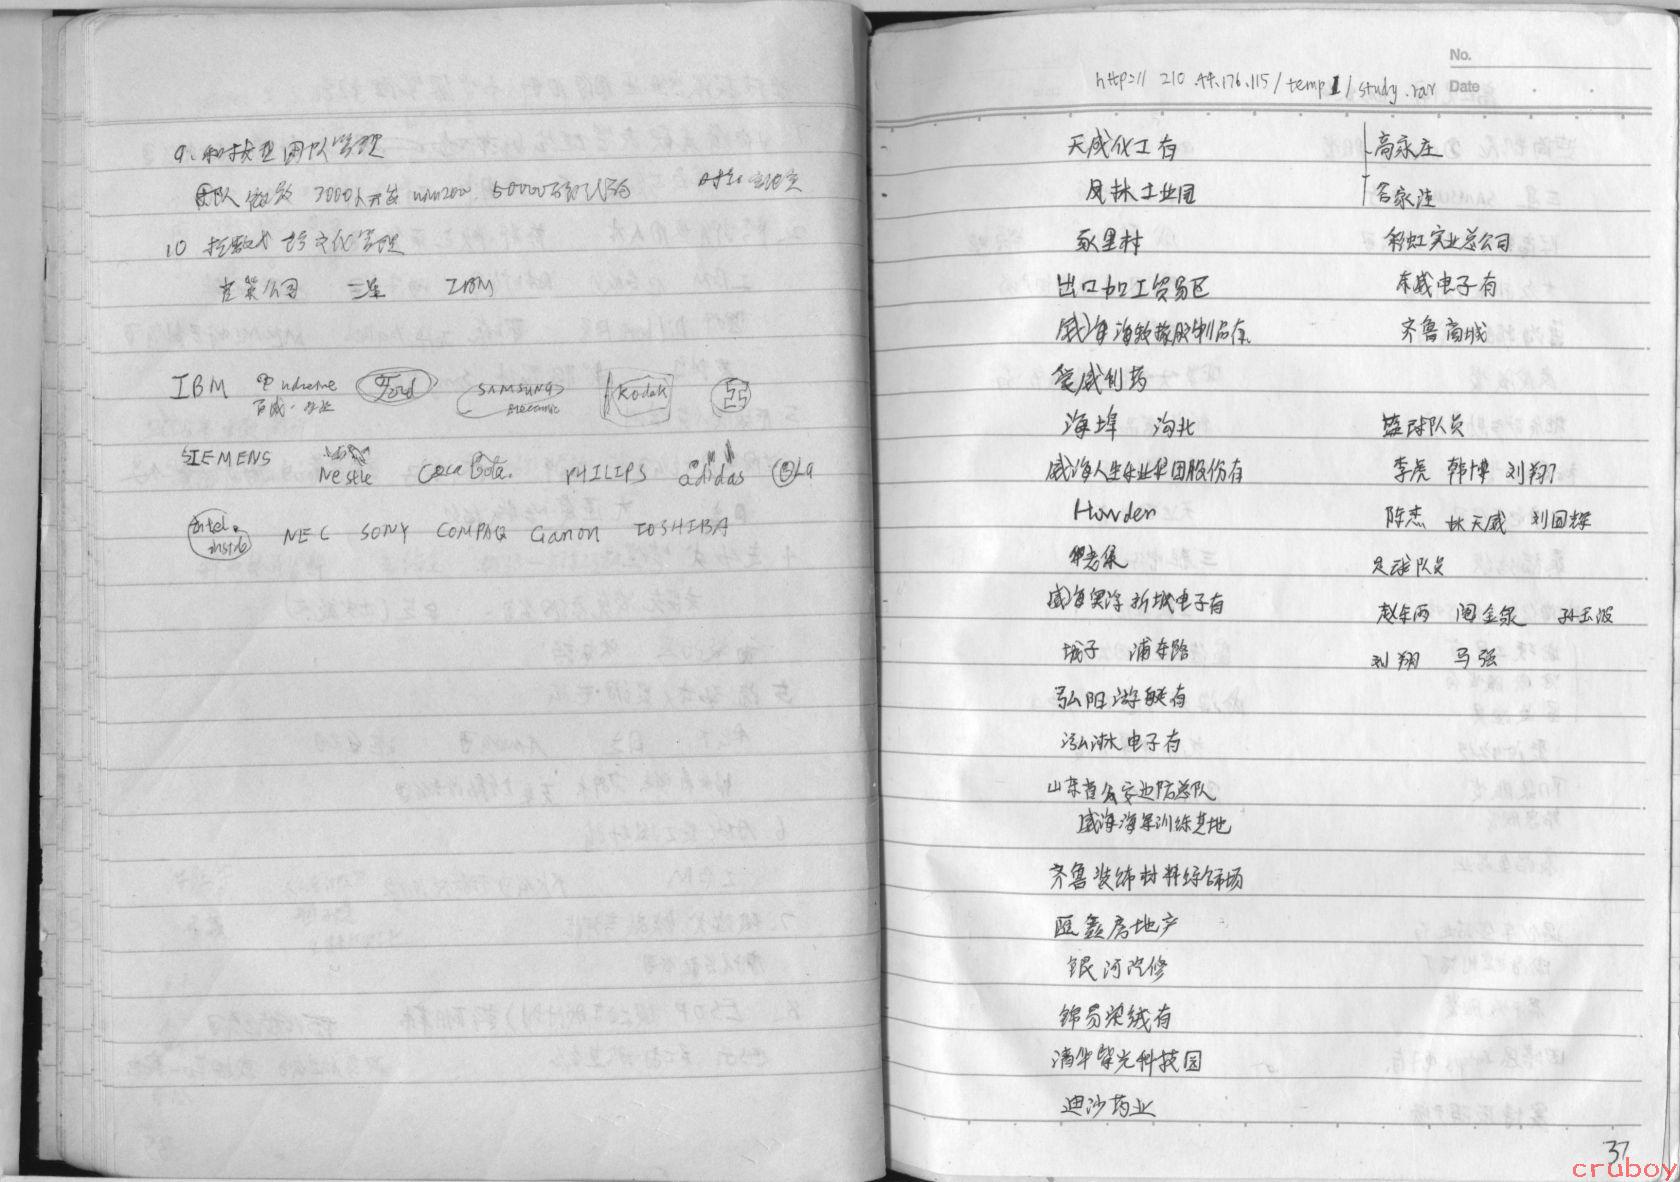 9. 和扶型团队管理
团队 微软 3000人开发 win200 50000
10 控 跨文化管理
公司 三星 IBM
IBM Pudreme Ford SAMSUNG Kodak
百威
Electronic
SIEMENS Nestle Coca Cola. PHILIPS adidas
intel inside NEC SONY COMPAQ Canon TOSHIBA
No.
http:// 210.44.176.115/temp1/study.rar Date
天威化工有 高家庄
凤林工业园 名家洼
里村 彩虹实业总公司
出口加工贸易区 东威电子有
威海海 橡胶制品有 齐鲁商城
威制药
海埠 沟北 篮球队员
威海人生乐业集团股份有 李虎 韩博 刘翔
Howden 陈杰 林天威 刘国辉
足球队员
威海 新城电子有 赵东西 闫金泉 孙玉波
城子 浦东路 刘翔 马强
弘阳游艇有
泓淋电子有
山东省公安边防总队
威海海军训练基地
齐鲁装饰材料综合市场
汇鑫房地产
银河汽修
锦 染绒有
清华紫光科技园
迪沙药业
37
cruboy